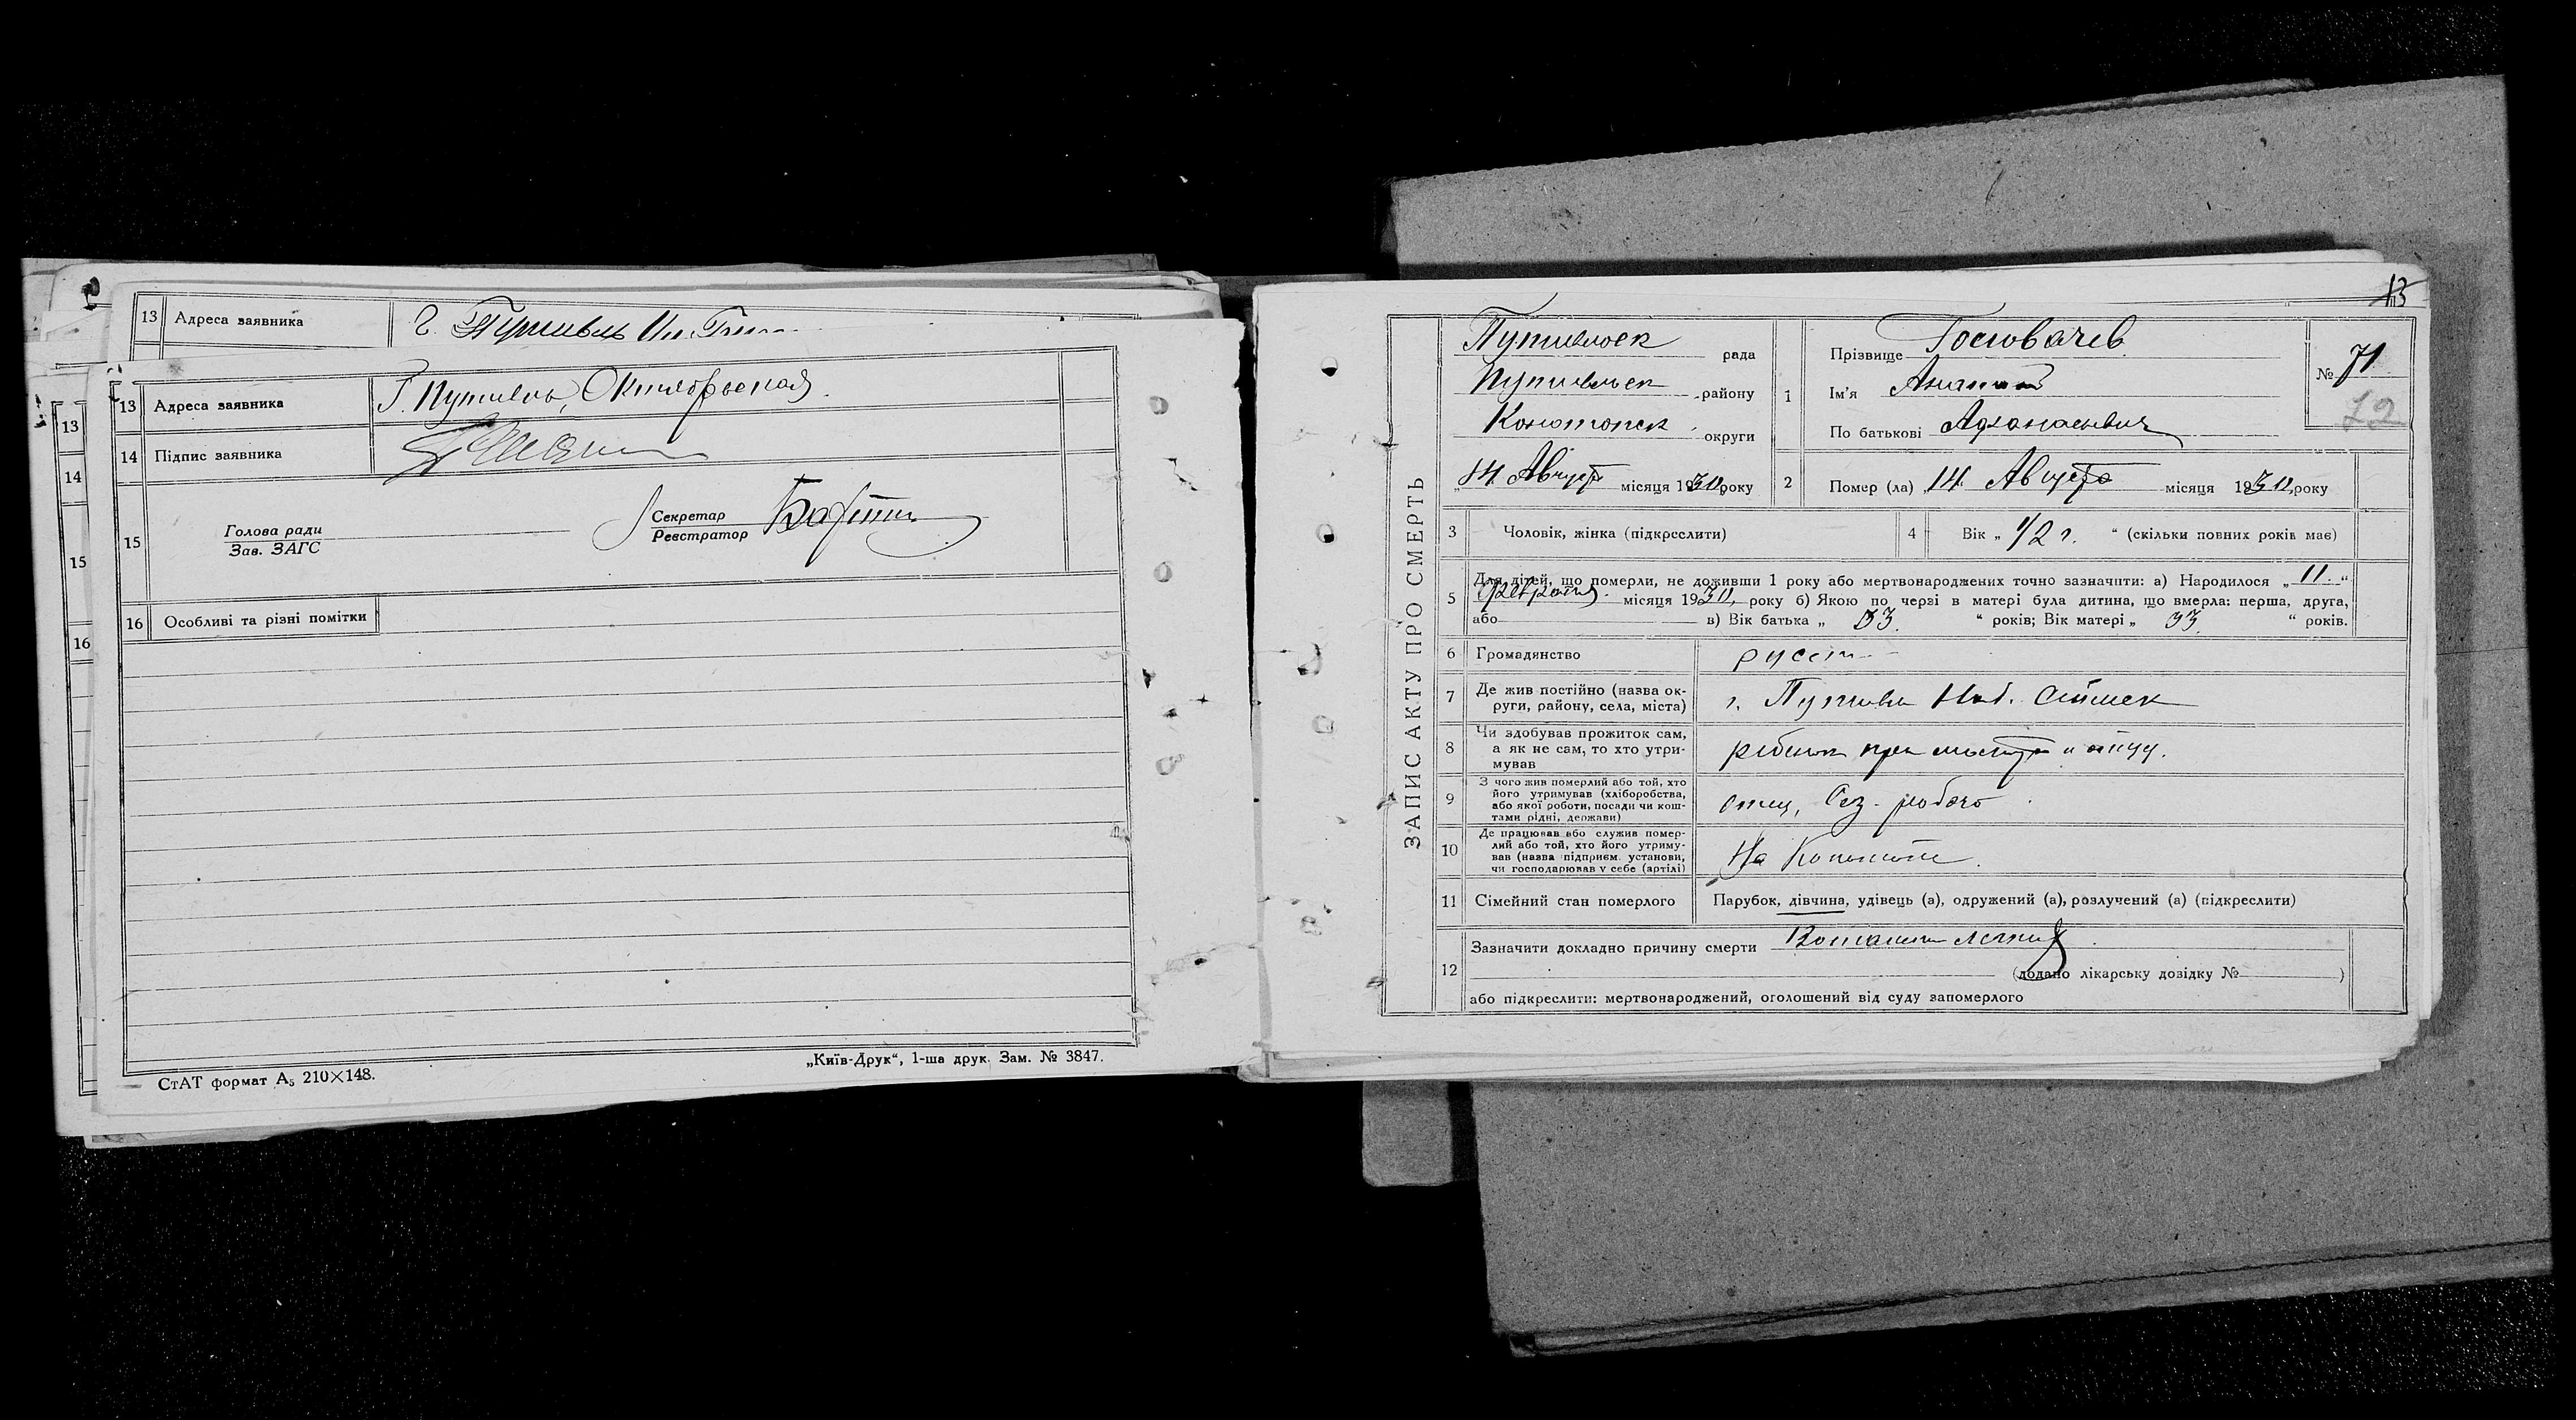 13 Адреса заявника г. Путивль
13 Адреса заявника Г. Путивль, Октябрьская
14 Підпис заявника
15 Голова ради
Зав. ЗАГС
Секретар
Реєстратор
16 Особливі та різні помітки
„Київ-Друк“, 1-ша друк. Зам. № 3847.
СтАТ формат А5 210×148.
13
14
15
16
13
ЗАПИС АКТУ ПРО СМЕРТЬ
Путивльск рада
Путивльск району
Конотопск округи
„14 Августа місяця 1930 року
1 Прізвище
Ім'я Анатолий
По батькові Афанасьевич
№ 71
72
2 Помер (ла) „14 Августа місяця 1930 року
3 Чоловік, жінка (підкреслити)
4 Вік „ 1/2 г. “ (скільки повних років має)
5 Для дітей, що померли, не доживши 1 року або мертвонароджених точно зазначити: а) Народилося „ 11 “
Февраля місяця 1930 року б) Якою по черзі в матері була дитина, що вмерла: перша, друга,
або в) Вік батька „ 33 “ років; Вік матері „ 33 “ років.
6 Громадянство русск
7 Де жив постійно (назва ок-
руги, району, села, міста) г. Путивль
8 Чи здобував прожиток сам,
а як не сам, то хто утри-
мував ребенок при и отцу.
9 З чого жив померлий або той, хто
його утримував (хліборобства,
або якої роботи, посади чи кош-
тами рідні, держави) отец, Сез. рабоч
10 Де працював або служив помер-
лий або той, хто його утриму-
вав (назва підприєм. установи,
чи господарював у себе (артілі) На
11 Сімейний стан померлого Парубок, дівчина, удівець (а), одружений (а), розлучений (а) (підкреслити)
12 Зазначити докладно причину смерти легких
(додано лікарську довідку № )
або підкреслити: мертвонароджений, оголошений від суду запомерлого